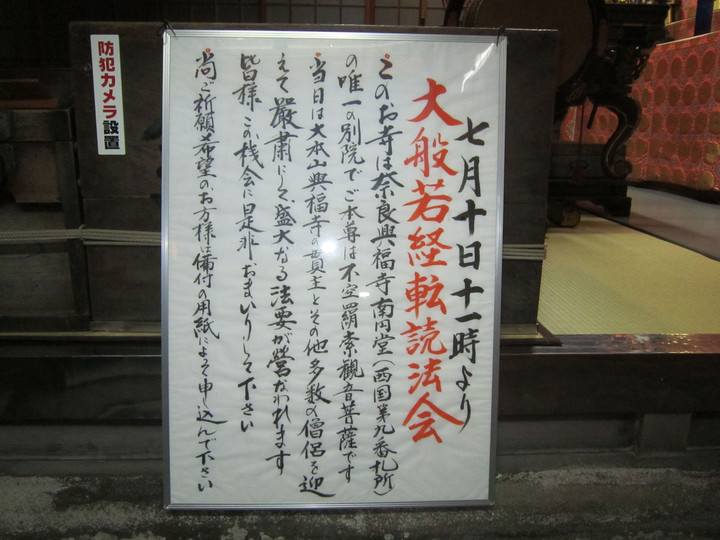 七月十日十一時より
大般若経転読法会
このお寺は奈良興福寺南円堂(西国第九番札所)
の唯一の別院でご本尊は不空羂索観音菩薩です
当日は大本山興福寺の貫主とその他多数の僧侶を迎
えて厳粛にして盛大なる法要が営なわれます
皆様この機会に是非おまいりして下さい
尚ご祈願希望のお方様は備付の用紙によって申し込んで下さい
防犯カメラ設置